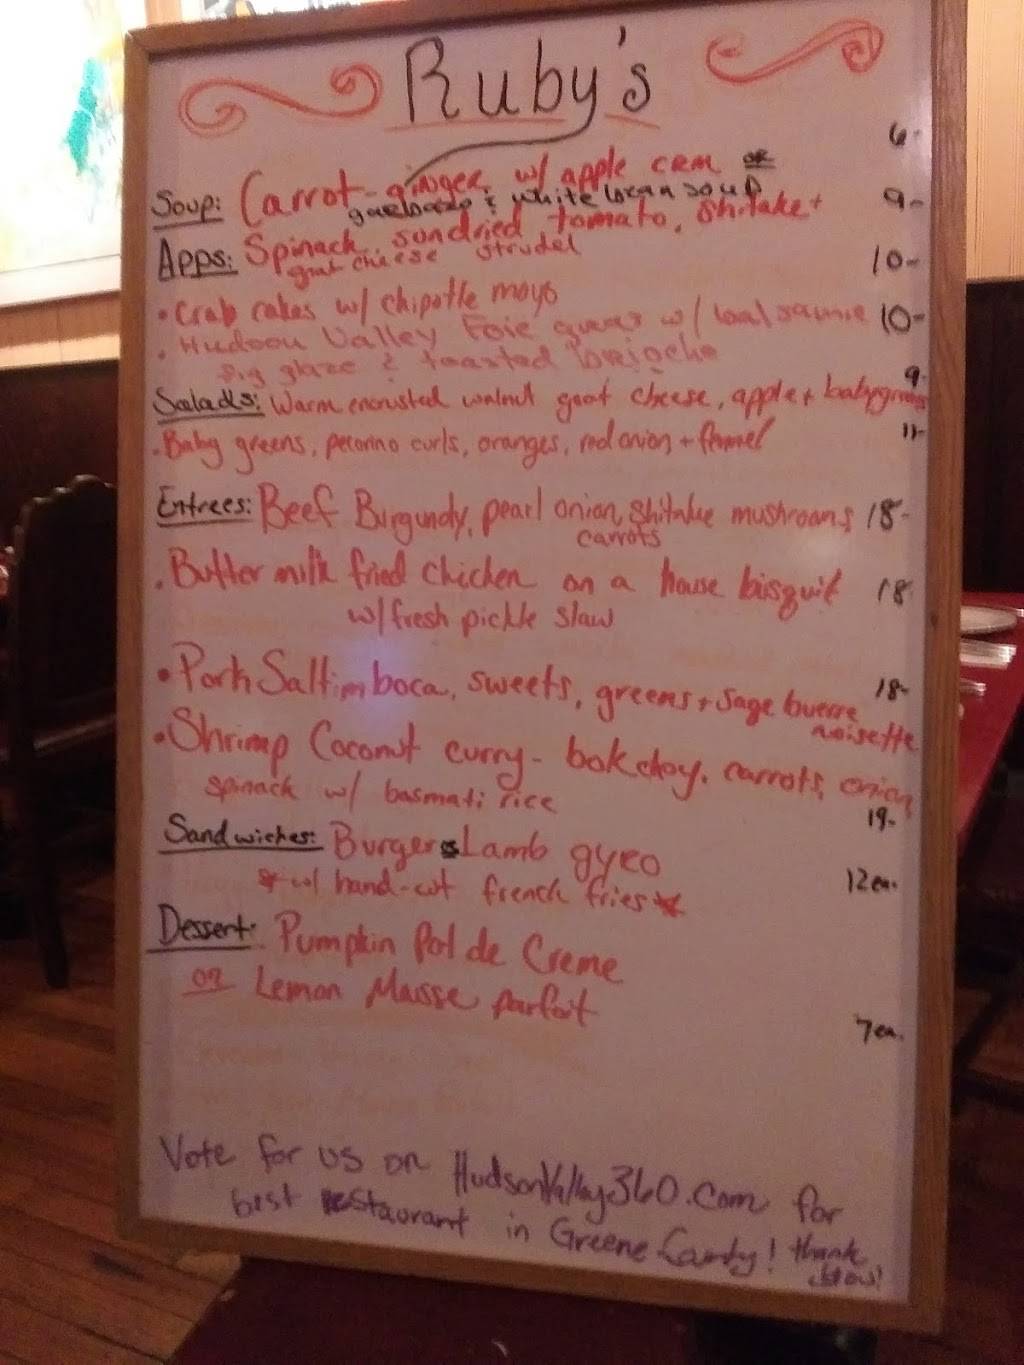 Ruby's
Soup: Carrot-ginger w/ apple crm or 6-
garbanzo & white bean soup
Apps: Spinach, sundried tomato, shitake + 9-
goat cheese strudel
• Crab cakes w/ chipotle mayo 10-
• Hudson Valley Foie gras w/ local saumie 10-
fig glaze & toasted brioche
Salads: Warm encrusted walnut goat cheese, apple + babygreens 9-
• Baby greens, pecorino curls, oranges, red onion + fennel 11-
Entrees: Beef Burgundy, pearl onion, Shitake mushrooms, 18-
carrots
• Butter milk fried chicken on a house bisquit 18
w/ fresh pickle slaw
• Pork Saltimboca, sweets, greens + sage buerre 18-
noisette
• Shrimp Coconut curry - bok choy, carrots, onion
spinach w/ basmati rice 19-
Sandwiches: Burger & Lamb gyro
* w/ hand-cut french fries * 12 ea.
Dessert: Pumpkin Pot de Creme
or Lemon Mousse parfait 7 ea.
Vote for us on HudsonValley360.com for
best restaurant in Greene County! thank
you!